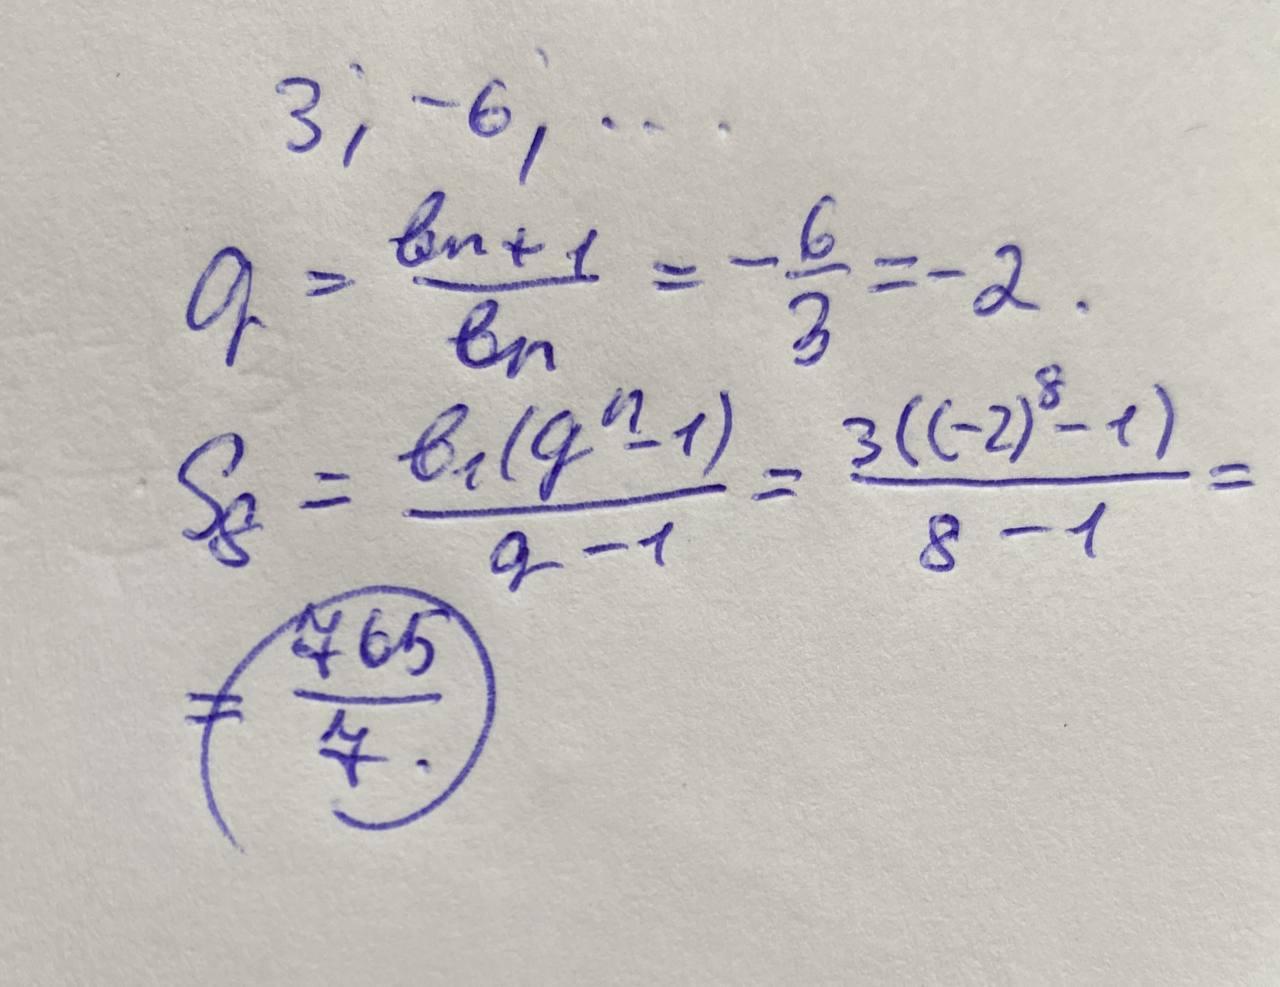 3; -6; ...
q = bn+1/bn = -6/3 = -2.
S8 = b1(q^n-1)/q-1 = 3((-2)^8-1)/8-1 =
= 765/7.